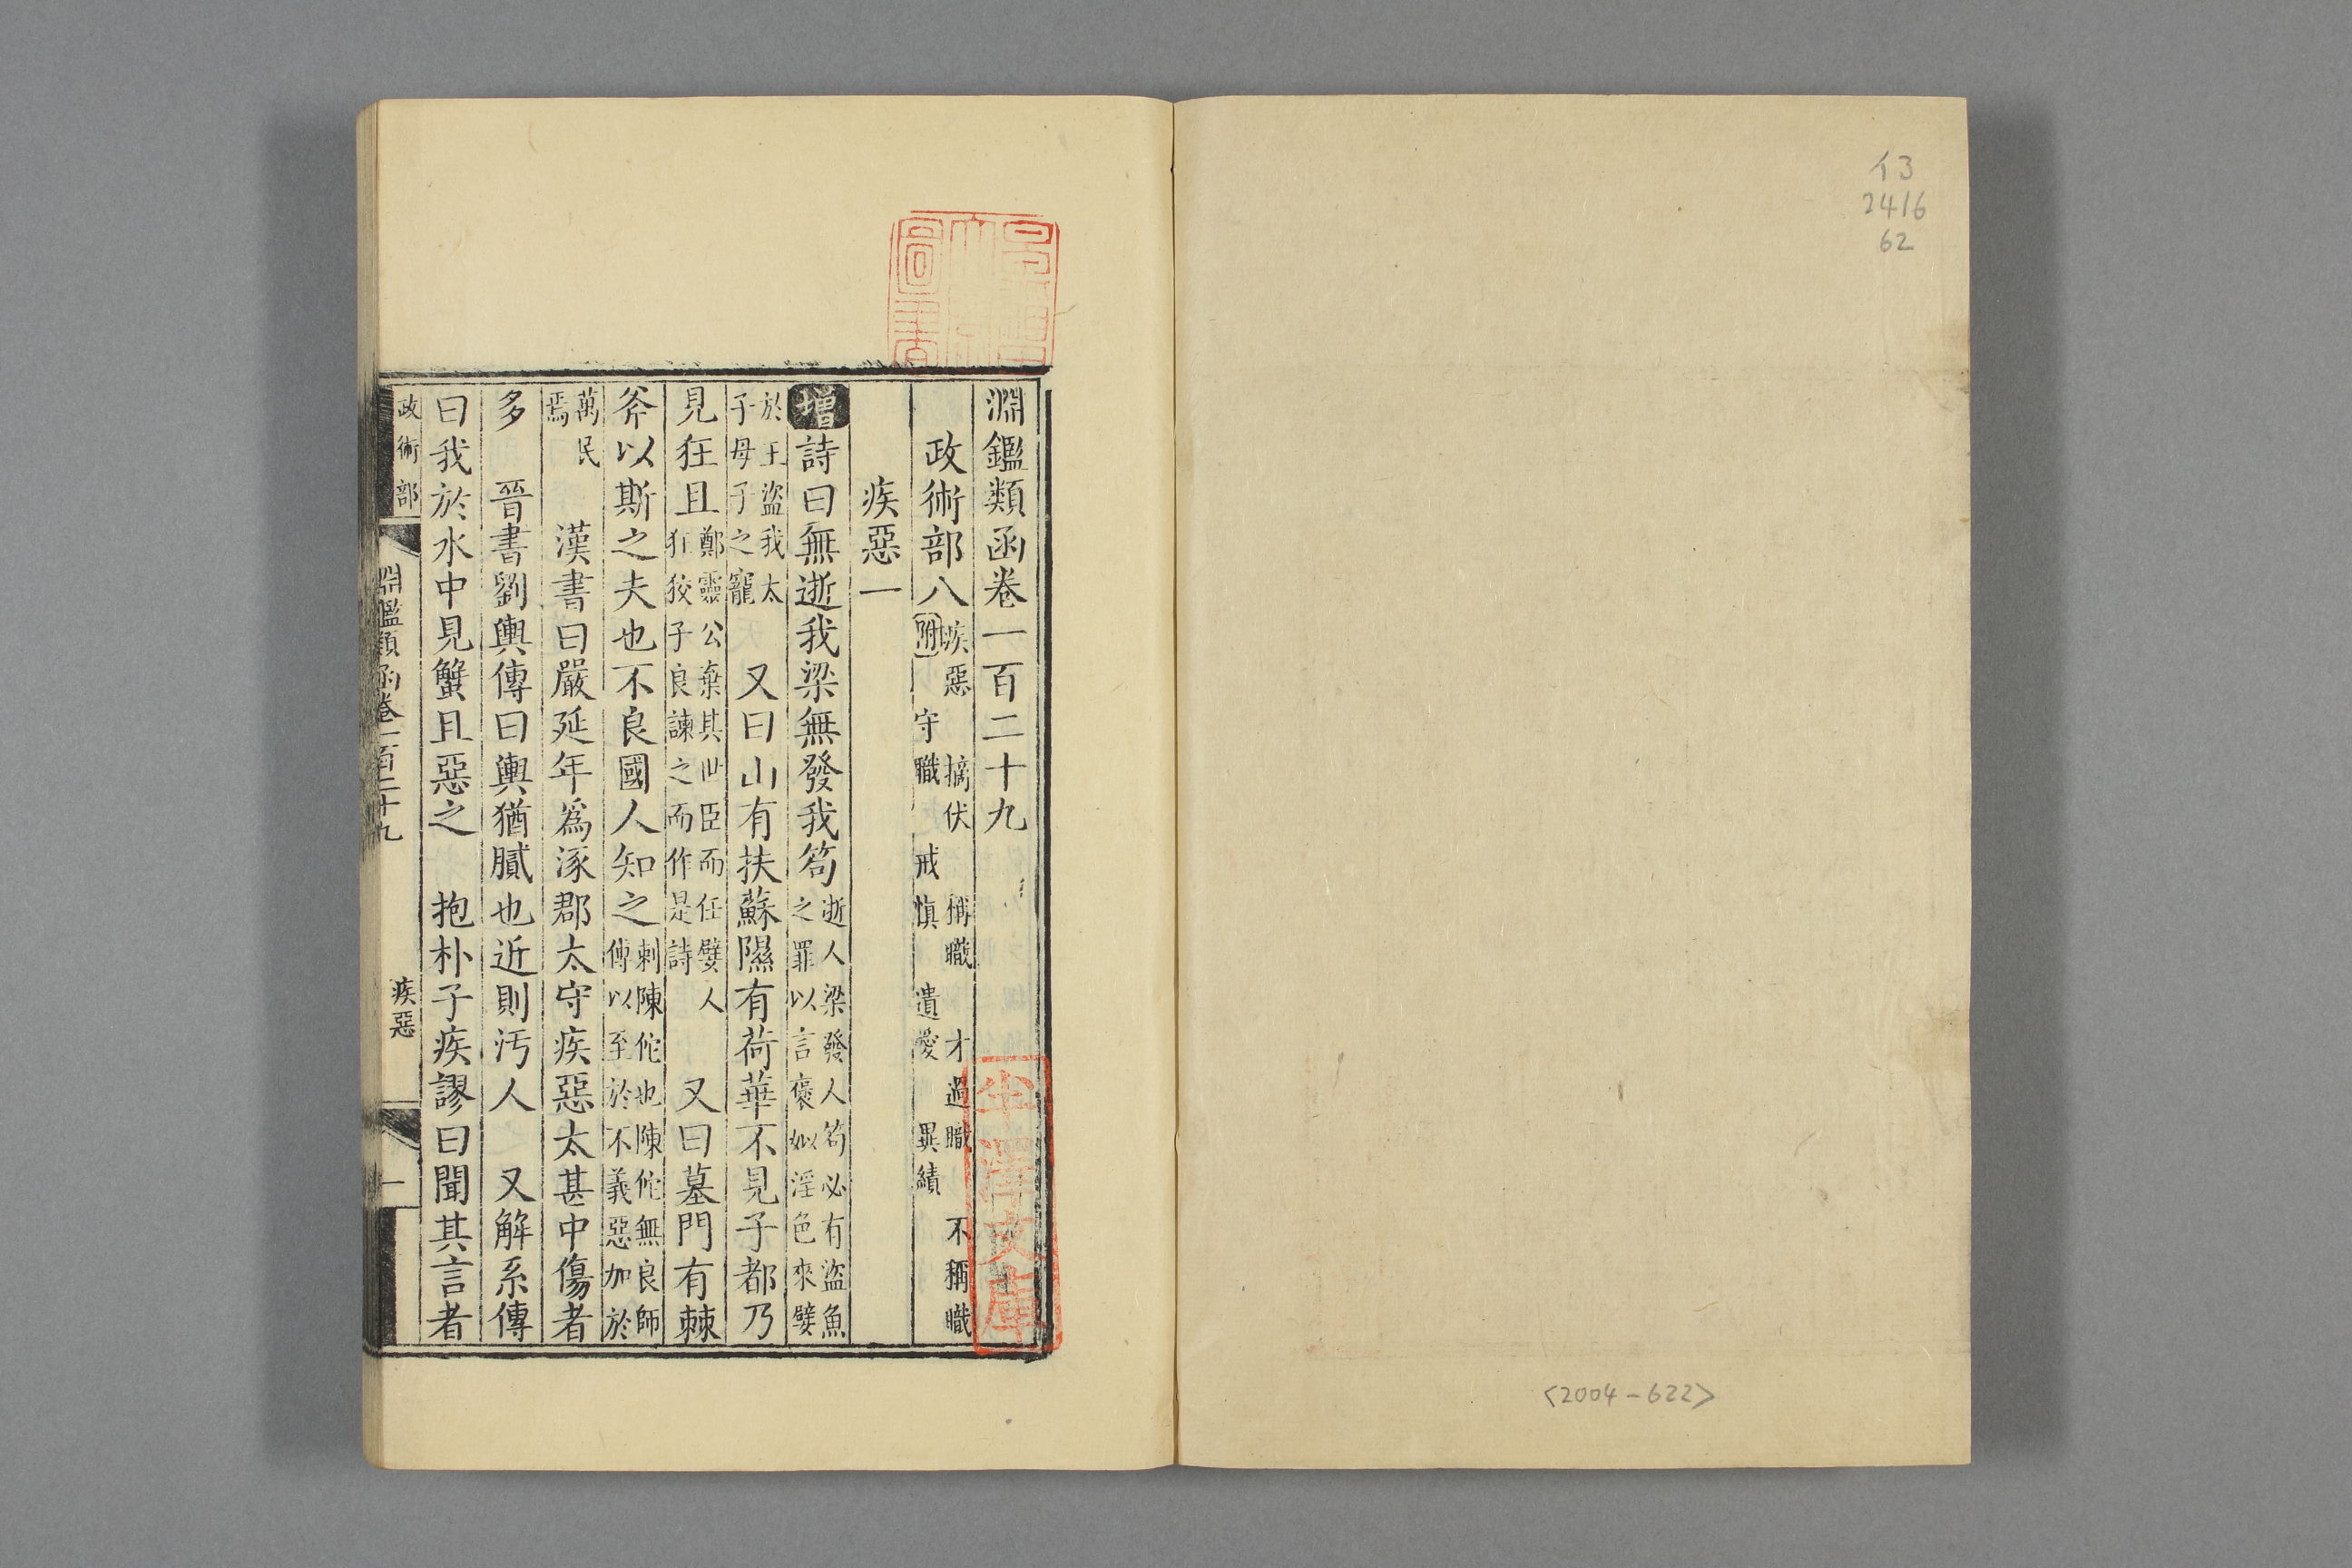 イ3
2416
62
<2004-622>
淵鑑類函卷一百二十九
政術部八 疾惡 摘伏 稱職 才過職 不稱職
附 守職 戒慎 遺愛 異績
疾惡一
增詩曰無逝我梁無發我笱 逝人梁發人笱必有盜魚
之罪以言褒姒淫色來嬖
於王盜我太
子母子之寵 又曰山有扶蘇隰有荷華不見子都乃
見狂且 鄭靈公棄其世臣而任嬖人
狂狡子良諫之而作是詩 又曰墓門有棘
斧以斯之夫也不良國人知之 刺陳佗也陳佗無良師
傅以至於不義惡加於
萬民
焉 漢書曰嚴延年爲涿郡太守疾惡太甚中傷者
多 晉書劉輿傳曰輿猶膩也近則汚人 又解系傳
曰我於水中見蟹且惡之 抱朴子疾謬曰聞其言者
政術部
淵鑑類函卷一百二十九
疾惡
一
圖書
半澤文庫